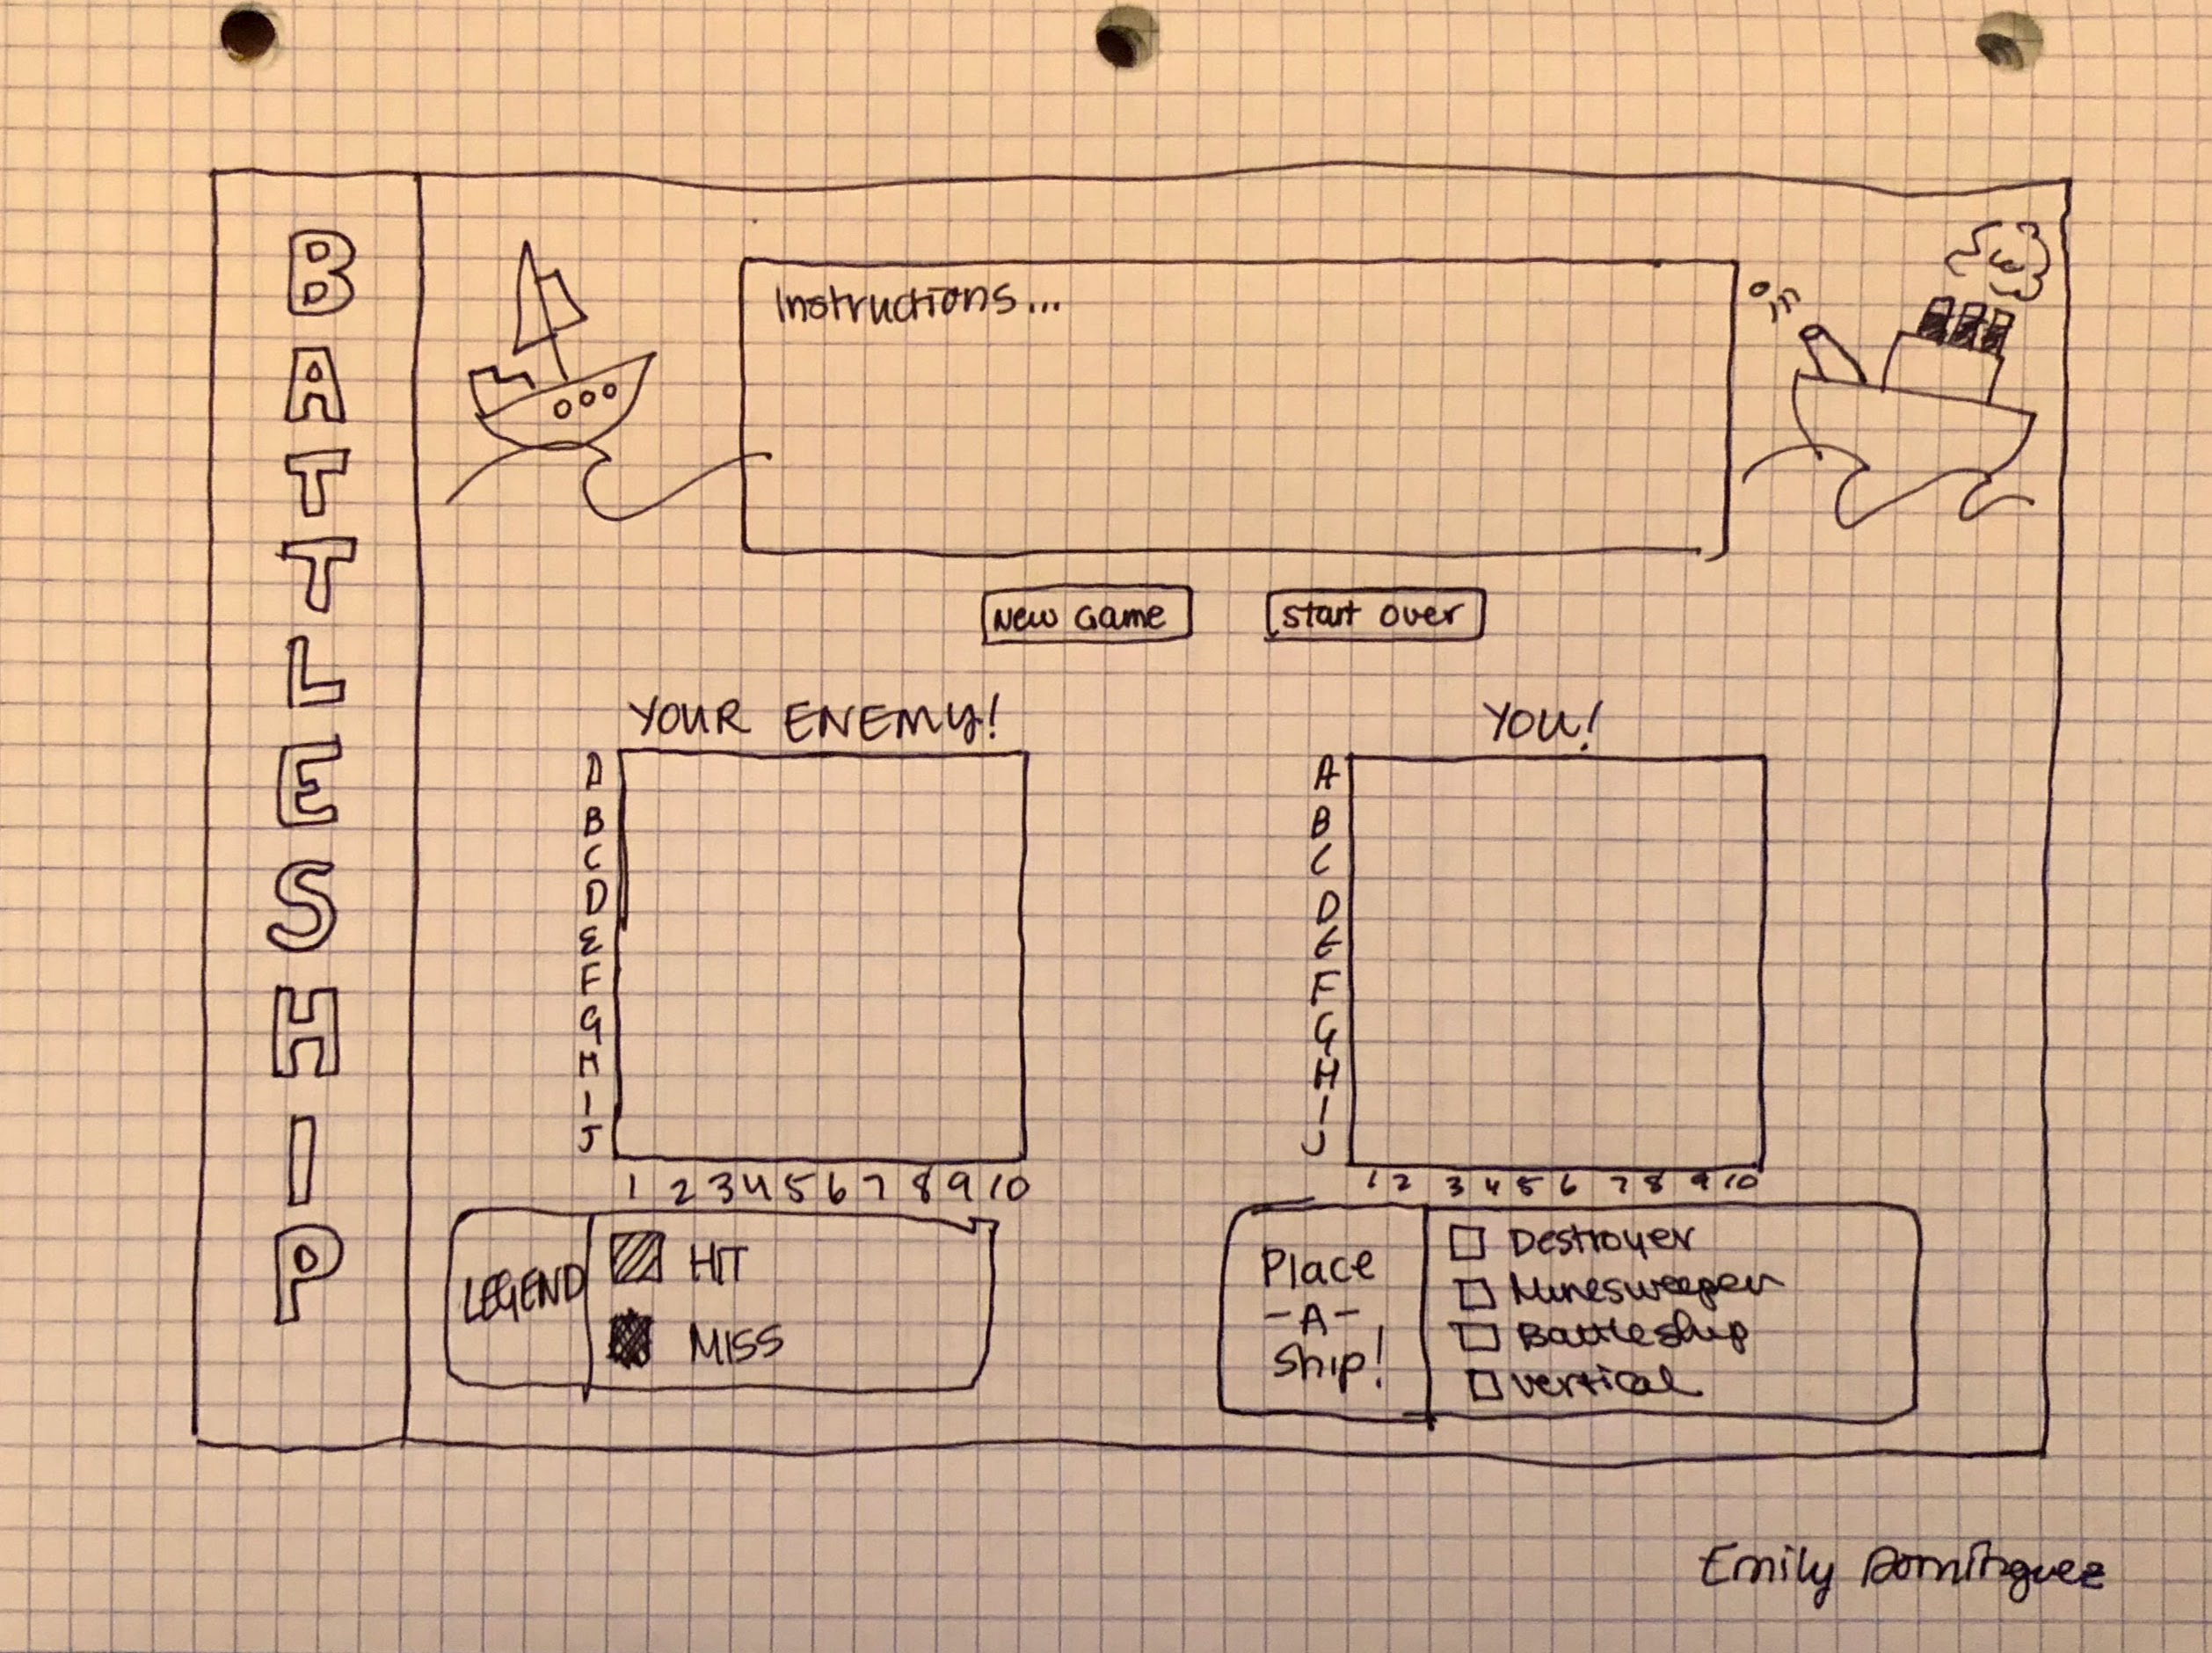 BATTLESHIP
Instructions...
New Game
Start over
YOUR ENEMY!
A
B
C
D
E
F
G
H
I
J
1 2 3 4 5 6 7 8 9 10
YOU!
A
B
C
D
E
F
G
H
I
J
1 2 3 4 5 6 7 8 9 10
LEGEND
HIT
MISS
Place
-A-
Ship!
Destroyer
Minesweeper
Battleship
vertical
Emily Dominguez